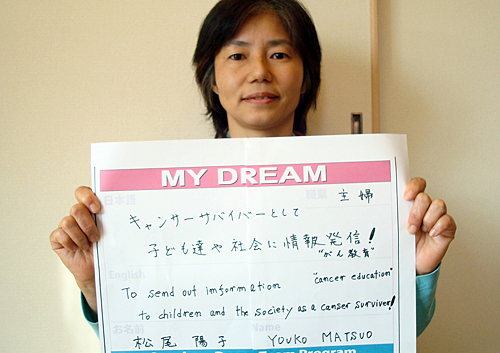 MY DREAM
日本語
職業
主婦
キャンサーサバイバーとして
子ども達や社会に情報発信!
"がん教育"
English
"cancer education"
To send out imformation
to children and the society as a canser surviver!
お名前
Name
松尾 陽子 YOUKO MATSUO